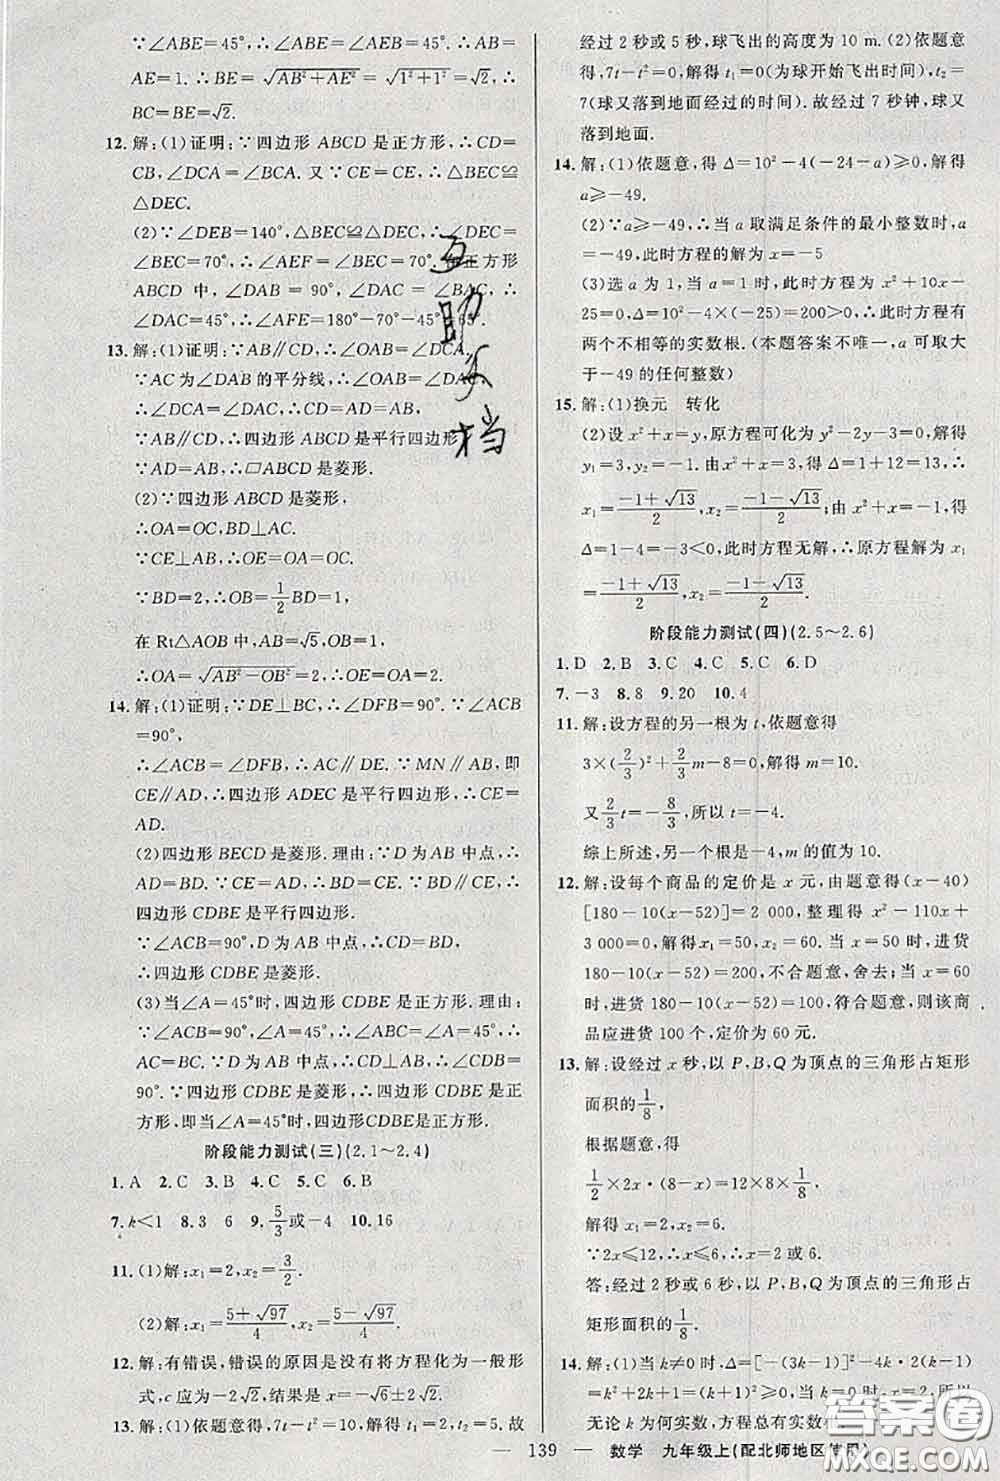 ∵∠ABE=45°,∴∠ABE=∠AEB=45°.∴AB=
AE=1.∴BE=√(AB²+AE²)=√(1²+1²)=√2,∴
BC=BE=√2.
12.解:(1)证明:∵四边形 ABCD 是正方形,∴CD=
CB,∠DCA=∠BCA.又∵CE=CE,∴△BEC≌
△DEC.
(2)∵∠DEB=140°,△BEC≌△DEC,∴∠DEC=
∠BEC=70°,∴∠AEF=∠BEC=70°.在正方形
ABCD 中,∠DAB=90°,∠DAC=∠BAC,∴
∠DAC=45°,∴∠AFE=180°-70°-45°=65°.
13.解:(1)证明:∵AB∥CD,∴∠OAB=∠DCA.
∵AC为∠DAB的平分线,∴∠OAB=∠DAC,
∴∠DCA=∠DAC,∴CD=AD=AB,
∵AB∥CD,∴四边形ABCD是平行四边形,
∵AD=AB,∴▱ABCD是菱形.
(2)∵四边形ABCD是菱形,
∴OA=OC,BD⊥AC.
∵CE⊥AB,∴OE=OA=OC.
∵BD=2,∴OB=1/2BD=1,
在 Rt△AOB中,AB=√5,OB=1,
∴OA=√(AB²-OB²)=2,∴OE=OA=2.
14.解:(1)证明:∵DE⊥BC,∴∠DFB=90°.∵∠ACB
=90°,
∴∠ACB=∠DFB,∴AC∥DE.∵MN∥AB,即
CE∥AD,∴四边形 ADEC 是平行四边形,∴CE=
AD.
(2)四边形BECD是菱形.理由:∵D为AB中点,∴
AD=BD.∵CE=AD,∴BD=CE.∵BD∥CE,∴
四边形CDBE是平行四边形.
∵∠ACB=90°,D为AB中点,∴CD=BD,
∴四边形CDBE是菱形.
(3)当∠A=45°时,四边形CDBE是正方形.理由:
∵∠ACB=90°,∠A=45°,∴∠ABC=∠A=45°,∴
AC=BC.∵D为AB中点,∴CD⊥AB,∴∠CDB=
90°.∵四边形CDBE是菱形,∴四边形CDBE是正
方形,即当∠A=45°时,四边形CDBE是正方形.
阶段能力测试(三)(2.1~2.4)
1.A 2.C 3.B 4.C 5.C 6.B
7.k<1 8.3 6 9.5/3或-4 10.16
11.(1)解:x₁=2,x₂=3/2.
(2)解:x₁=(5+√97)/4,x₂=(5-√97)/4.
12.解:有错误,错误的原因是没有将方程化为一般形
式,c应为-2√2,结果是x=-√6±2√2.
13.解:(1)依题意得,7t-t²=10,解得t₁=2,t₂=5,故
经过2秒或5秒,球飞出的高度为10 m.(2)依题意
得,7t-t²=0,解得t₁=0(为球开始飞出时间),t₂=
7(球又落到地面经过的时间).故经过7秒钟,球又
落到地面.
14.解:(1)依题意,得 Δ=10²-4(-24-a)≥0,解得
a≥-49.
(2)∵a≥-49,∴当a取满足条件的最小整数时,a=
-49,此时方程的解为x=-5
(3)选a为1,当a=1时,此时方程为x²+10x-
25=0,Δ=10²-4×(-25)=200>0,此时方程有
两个不相等的实数根.(本题答案不唯一,a可取大
于-49的任何整数)
15.解:(1)换元 转化
(2)设x²+x=y,原方程可化为y²-2y-3=0,解得
y₁=3,y₂=-1.由x²+x=3,得Δ=1+12=13,
x₁=(-1+√13)/2,x₂=(-1-√13)/2;由x²+x=-1,得
Δ=1-4=-3<0,此时方程无解,∴原方程解为x₁
=(-1+√13)/2,x₂=(-1-√13)/2.
阶段能力测试(四)(2.5~2.6)
1.D 2.B 3.C 4.C 5.C 6.D
7.-3 8.8 9.20 10.4
11.解:设方程的另一根为t,依题意得
3×(2/3)²+2/3m-8=0,解得m=10.
又2/3t=-8/3,所以t=-4.
综上所述,另一个根是-4,m的值为10.
12.解:设每个商品的定价是x元,由题意得(x-40)
[180-10(x-52)]=2 000,整理得 x²-110x+
3 000=0,解得x₁=50,x₂=60.当x=50时,进货
180-10(x-52)=200,不合题意,舍去;当x=60
时,进货180-10(x-52)=100,符合题意,则该商
品应进货100个,定价为60元.
13.解:设经过x秒,以P,B,Q为顶点的三角形占矩形
面积的1/8,
根据题意,得
1/2×2x·(8-x)=12×8×1/8,
解得x₁=2,x₂=6.
∵2x≤12,∴x≤6,∴x=2或6.
答:经过2秒或6秒,以P,B,Q为顶点的三角形占
矩形面积的1/8.
14.解:(1)当k≠0时,Δ=[-(3k-1)]²-4k·2(k-1)
=k²+2k+1=(k+1)²≥0,所以
无论k为何实数,方程总有实数
— 139 — 数学 九年级上(配北师地区使用)
互
助
文
档
答案圈
MXQE.COM